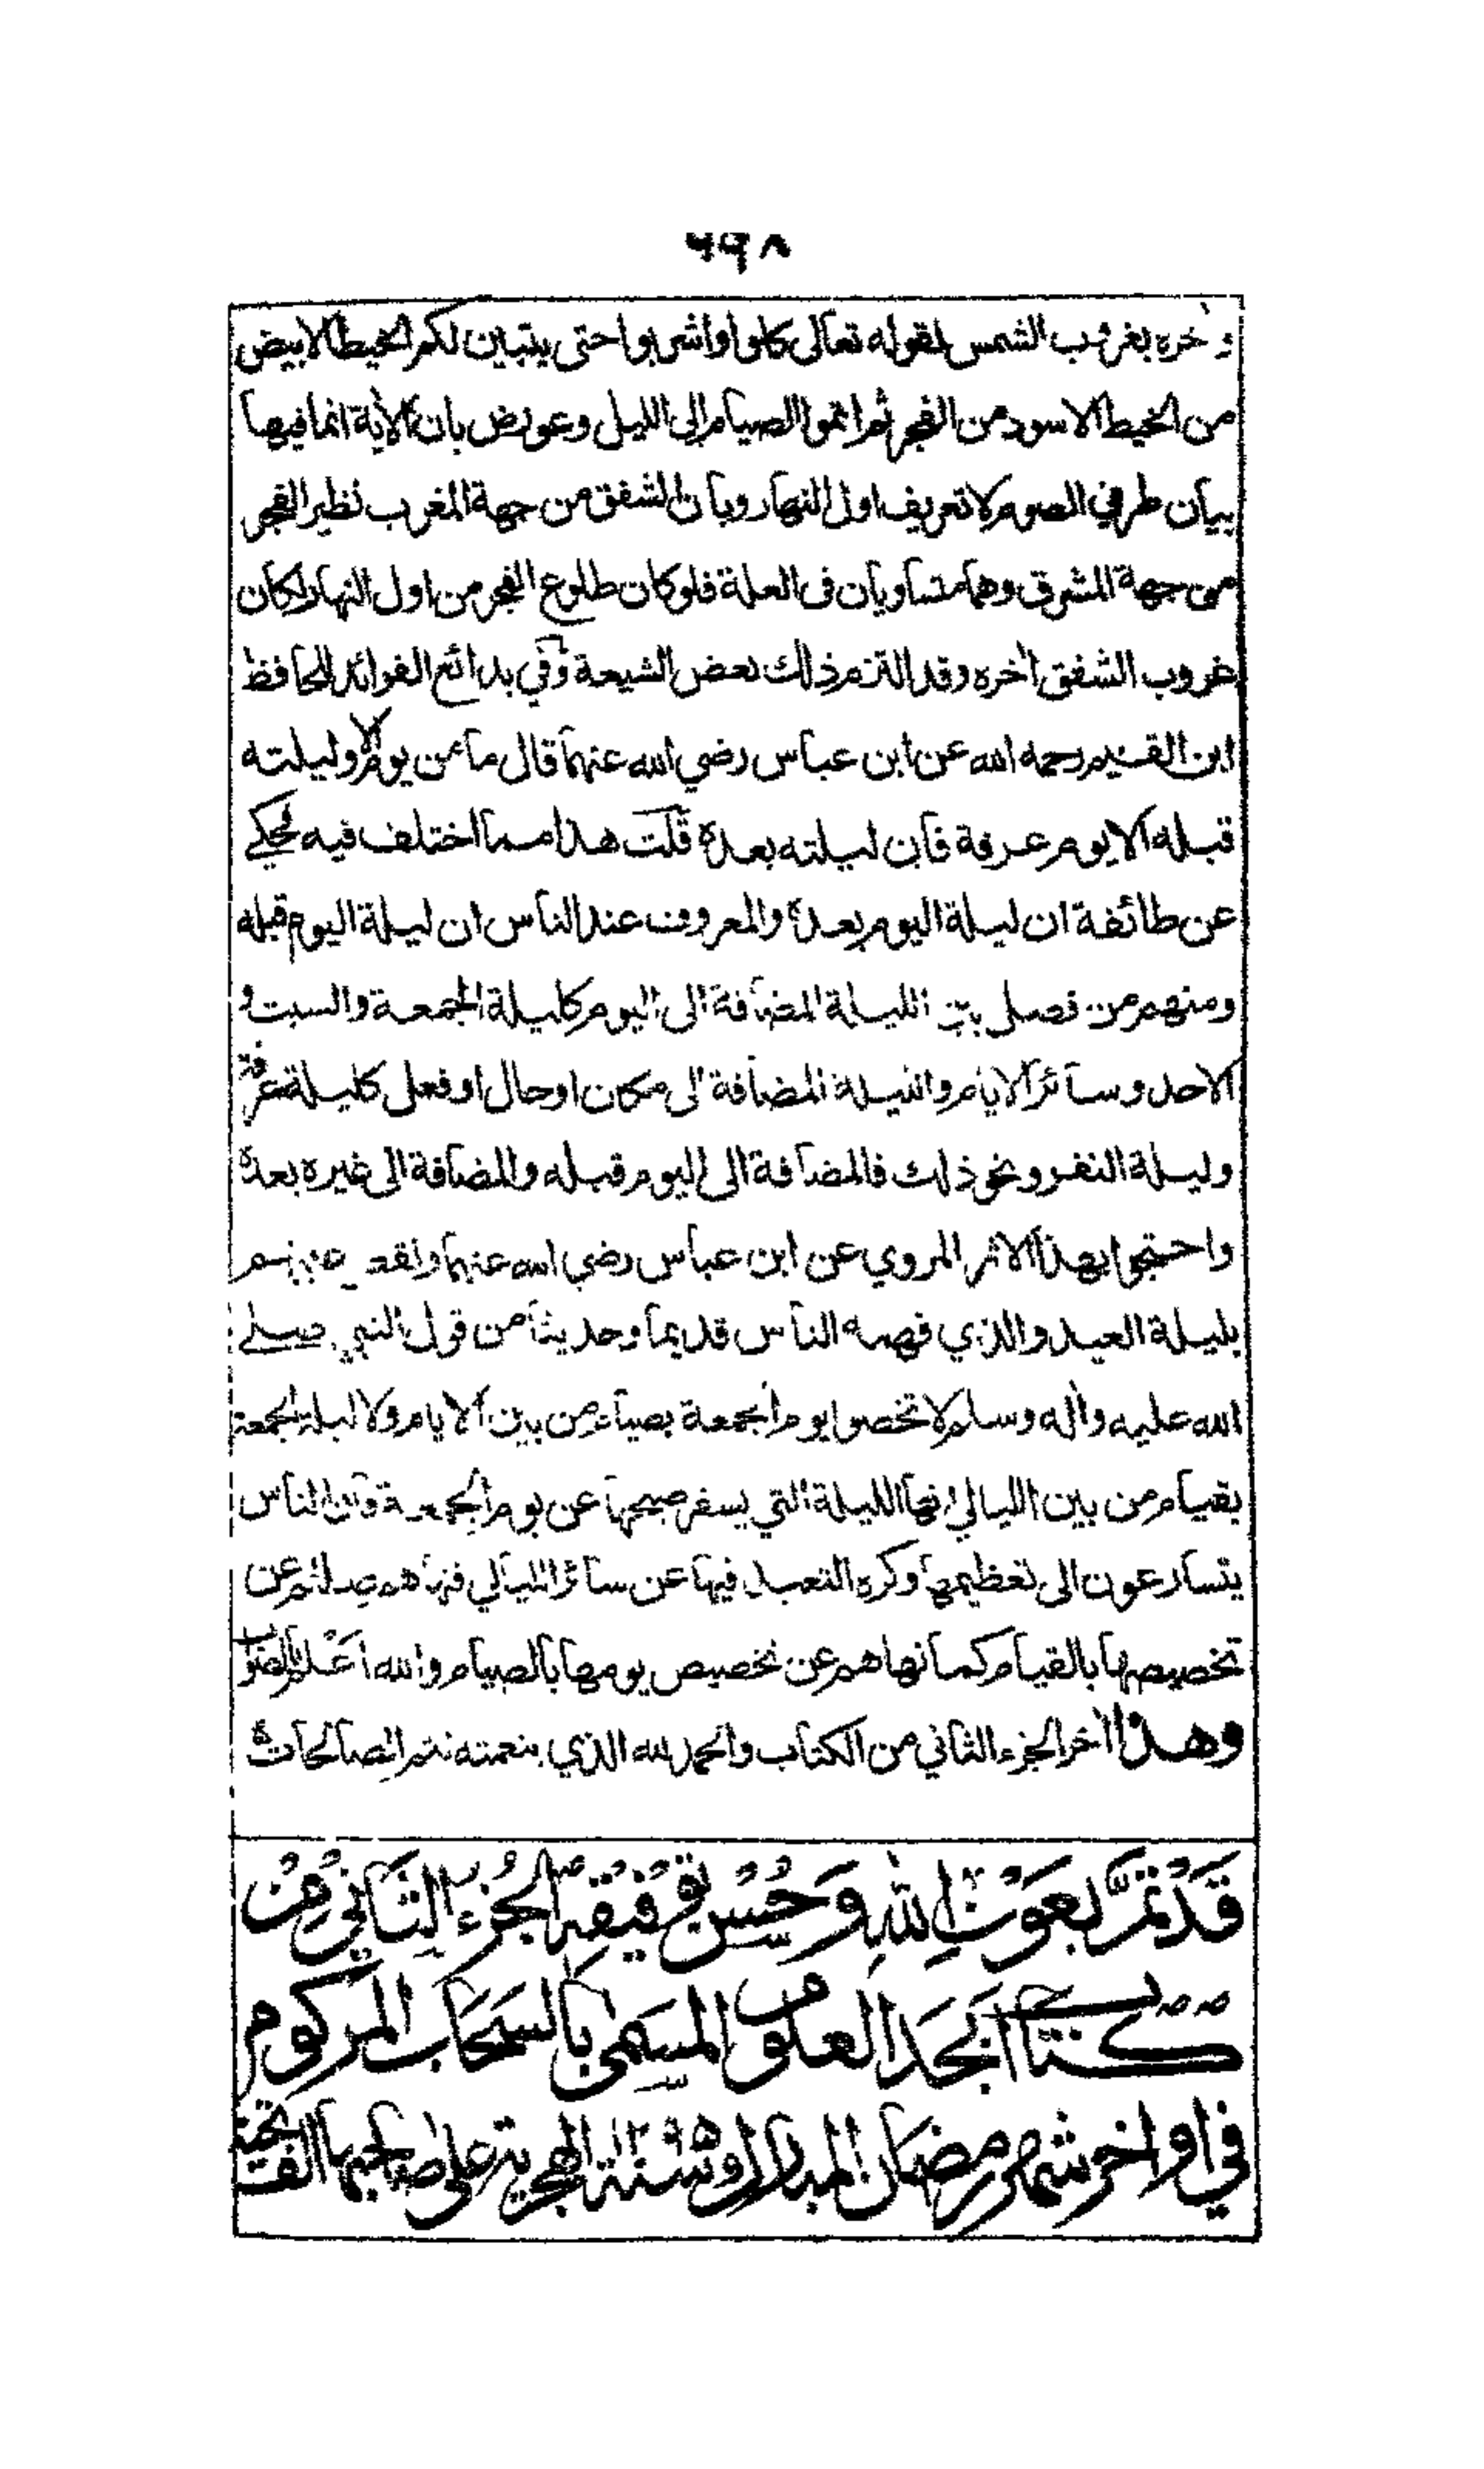 ٦٩٨
واخره بغروب الشمس لقوله تعالى كلوا واشربوا حتى يتبين لكم الخيط الابيض
من الخيط الاسود من الفجر ثم اتموا الصيام الى الليل وعورض بان الأية انما فيها
بيان طرفي الصوم لا تعريف اول النهار وبان الشفق من جهة المغرب نظير الفجر
من جهة المشرق وهما متساويان فى العلة فلو كان طلوع الفجر من اول النهار لكان
غروب الشفق اخره وقد التزم ذلك بعض الشيعة وفي بدائع الفوائد للحافظ
ابن القيم رحمه الله عن ابن عباس رضي الله عنهما قال ما من يوم الا وليلته
قبله الا يوم عرفة فان ليلته بعده قلت هذا مما اختلف فيه فحكي
عن طائفة ان ليلة اليوم بعده والمعروف عند الناس ان ليلة اليوم قبله
ومنهم من فصل بين الليلة المضافة الى اليوم كليلة الجمعة والسبت و
الاحد وسائر الايام والليلة المضافة الى مكان او حال او فعل كليلة عرفة
وليلة النفر ونحو ذلك فالمضافة الى اليوم قبله والمضافة الى غيره بعده
واحتجوا بهذا الاثر المروي عن ابن عباس رضي الله عنهما ونقض عليهم
بليلة العيد والذي فهمه الناس قديما وحديثا من قول النبي صلے
الله عليه واله وسلم لا تخصوا يوم الجمعة بصيام من بين الايام ولا ليلة الجمعة
بقيام من بين الليالي انها الليلة التي يسفر صبحها عن يوم الجمعة فان الناس
يتسارعون الى تعظيمها وكره التعبد فيها عن سائر الليالي فنهاهم صللم عن
تخصيصها بالقيام كما نهاهم عن تخصيص يومها بالصيام والله اعلم بالصواب
وهذا اخر الجزء الثاني من الكتاب والحمد لله الذي بنعمته تتم الصالحات
قَدْ تَمَّ بعَوْنِ اللهِ وَحُسْنِ توفيقِه الجُزءُ الثَّانِي مِنْ
كتاب اَبجَد العلوم المسَمى بالسَحَاب المركوم
في اواخر شهر رمضان المبارك سنة ١٢٩٥ الهجرية على صاحبها الف تحية